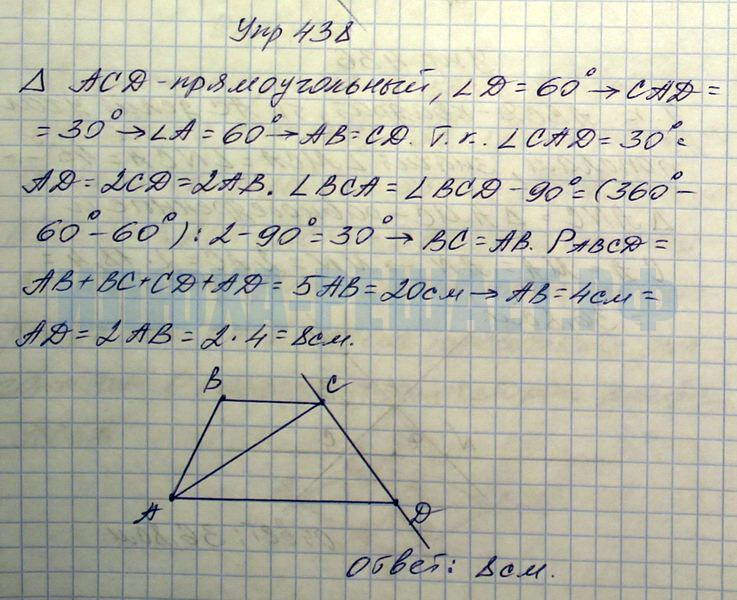 Упр 438
Δ ACD - прямоугольный, ∠D = 60° → CAD =
= 30° → ∠A = 60° → AB = CD. Т.к. ∠CAD = 30° =
AD = 2CD = 2AB. ∠BCA = ∠BCD - 90° = (360° -
60° - 60°) : 2 - 90° = 30° → BC = AB. PABCD =
AB + BC + CD + AD = 5AB = 20см → AB = 4см =
AD = 2AB = 2 · 4 = 8см.
B C
A D
Ответ: 8см.